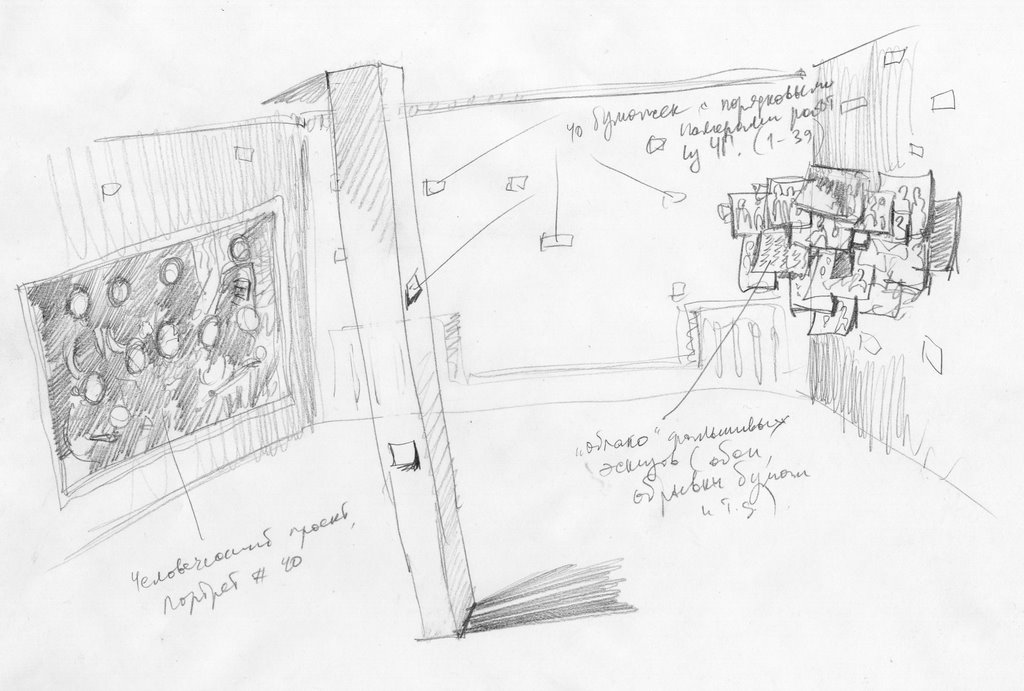 40 бумажек с порядковыми
номерами работ
ЧП. (1-39
"облако" фальшивых
эскизов (обои,
обрывки бумаги
и т.д.).
Человеческий проект,
портрет # 40